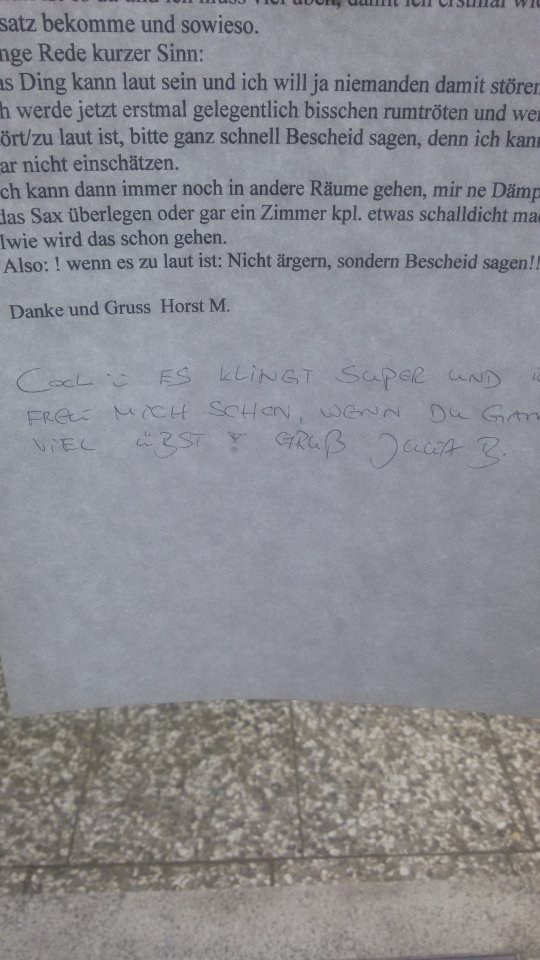 satz bekomme und sowieso.
nge Rede kurzer Sinn:
as Ding kann laut sein und ich will ja niemanden damit stören
h werde jetzt erstmal gelegentlich bisschen rumtröten und wen
ört/zu laut ist, bitte ganz schnell Bescheid sagen, denn ich kann
ar nicht einschätzen.
ch kann dann immer noch in andere Räume gehen, mir ne Dämp
das Sax überlegen oder gar ein Zimmer kpl. etwas schalldicht mac
Iwie wird das schon gehen.
Also: ! wenn es zu laut ist: Nicht ärgern, sondern Bescheid sagen!!
Danke und Gruss Horst M.
COOL ES KLINGT SUPER UND
FREU MICH SCHON, WENN DU GAN
VIEL ÜBST! GRUß JULIA B.